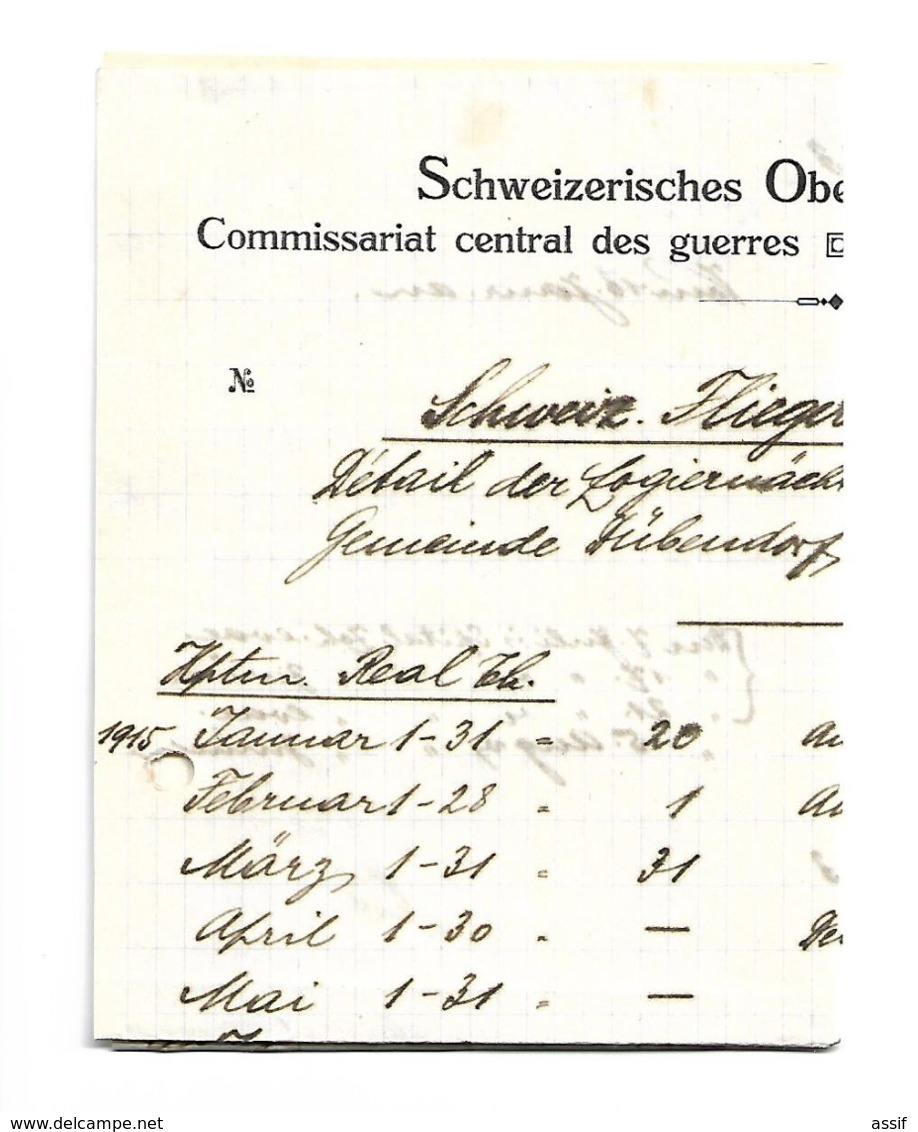 Schweizerisches Obe
Commissariat central des guerres
№
Schweiz. Flieger
Détail der Logiernäch
Gemeinde Dübendorf,
Hptm. Real Th.
1915 Januar 1-31 = 20 au
Februar 1-28 " 1 au
März 1-31 " 31
April 1-30 " —
Mai 1-31 " —
www.delcampe.net
assif